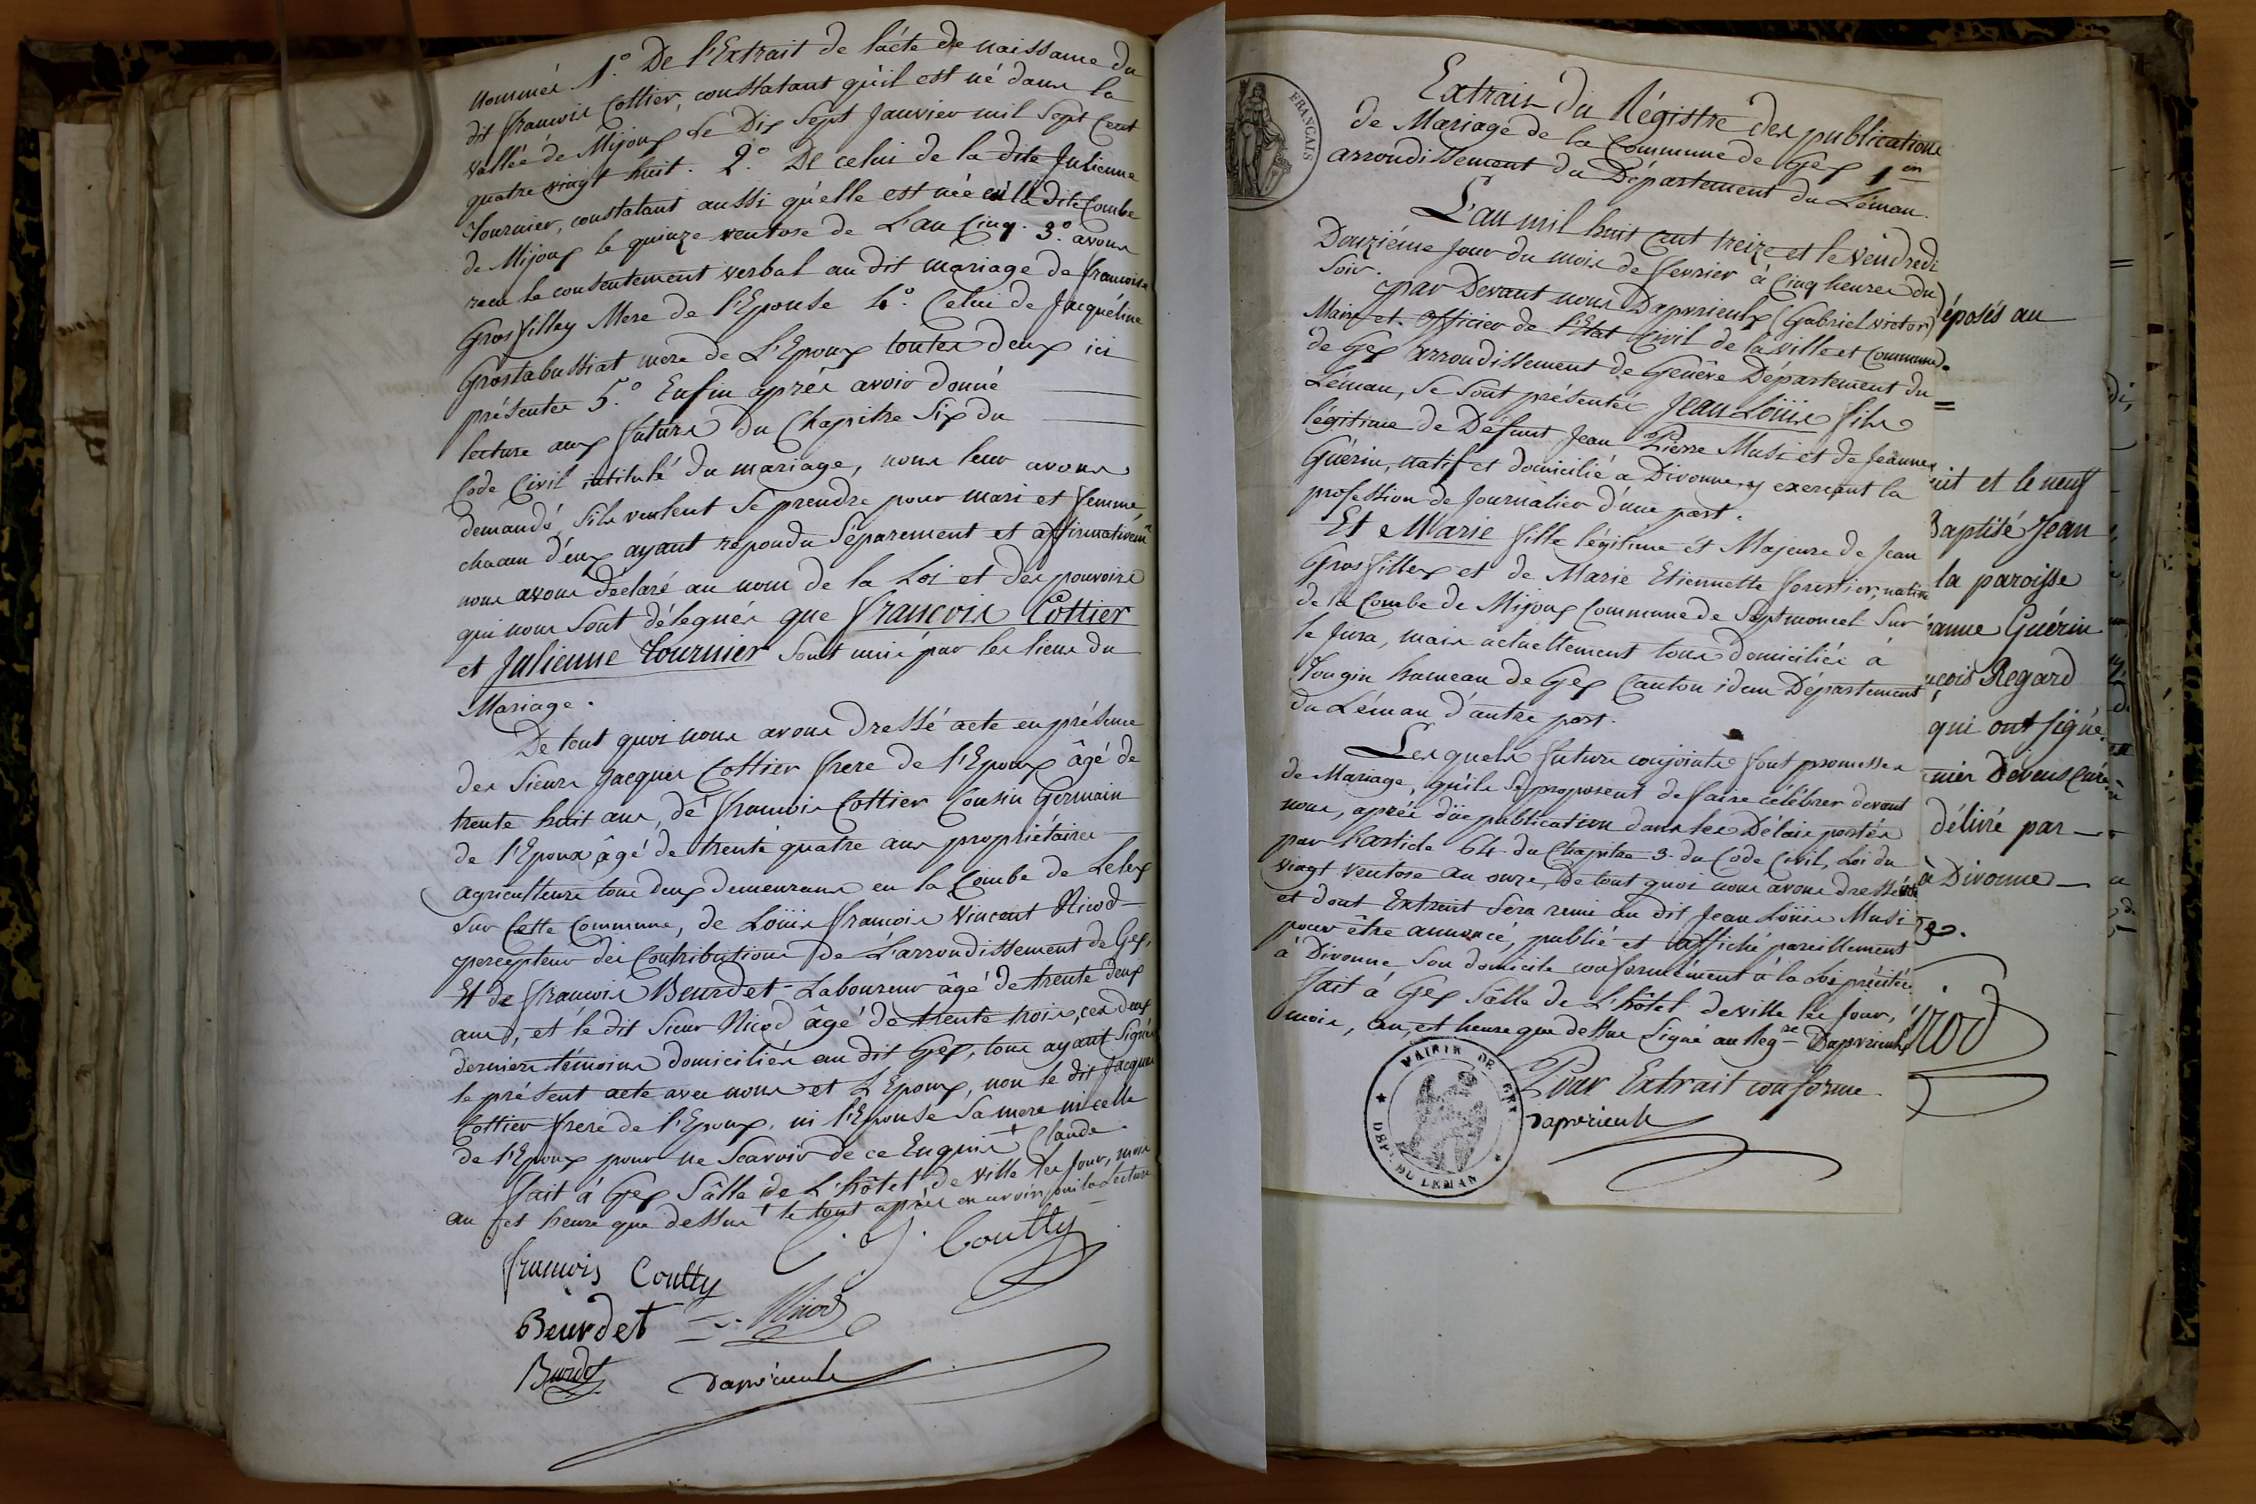 nommés 1.° De l'Extrait de l'acte de naissance du
dit françois Cottier, constatant qu'il est né dans la
vallée de Mijoux le Dix Sept Janvier mil Sept Cent
quatre vingt huit. 2.° De celui de la dite Julienne
Tournier, constatant aussi qu'elle est née en la dite Combe
de Mijoux le quinze ventose de L'an Cinq. 3.° avons
recu le consentement verbal au dit mariage de francoise
Grosfilley Mere de l'Epouse 4.° Celui de Jacquéline
Grostabussiat mere de L'Epoux toutes deux ici
présentes 5.° Enfin après avoir donné
lecture aux futurs du Chapitre Six du
Code Civil intitulé du mariage, nous leur avons
demandé s'ils veulent se prendre pour mari et femme
chacun d'eux ayant repondu Séparement et affirmativemt
nous avons déclaré au nom de la Loi et des pouvoirs
qui nous sont délegués que françois Cottier
et Julienne Tournier sont unis par les liens du
Mariage.
De tout quoi nous avons Dressé acte en présence
des Sieurs Jacques Cottier frere de l'Epoux âgé de
trente huit ans, de francois Cottier Cousin Germain
de l'Epoux âgé de trente quatre ans propriétaires
agriculteurs tous deux demeurans en la Combe de Lelex
sur Cette Commune, de Loüis francois Vincent Nicod
percepteur des Contributions de L'arrondissement de Gex,
Et de francois Beurdet Laboureur âgé de trente deux
ans, et le dit Sieur Nicod âgé de trente trois, ces deux
derniers témoins domiciliés au dit Gex, tous ayant Signé
le présent acte avec nous et L'Epoux, non le dit Jacques
Cottier frere de l'Epoux, ni l'Epouse sa mere ni celle
de l'Epoux pour ne Scavoir de ce Enquis
fait à Gex Sâlle de L'hôtel de ville les Jour, mois
an et heure que dessus le tout après en avoir oui la Lecture
françois Coutty C. J. Coutty
Beurdet Nicod
Burdet Dapvrieulx
FRANÇAIS
Extrait du Régistre des publications
de Mariage de la Commune de Gex 1er
arrondissement du Département du Léman.
L'an mil huit cent treize et le Vendredi
Douziéme Jour du mois de fevrier à Cinq heures du
Soir.
par Devant nous Dapvrieulx (Gabriel victor)
Maire et officier de l'Etat Civil de la ville et Commune
de Gex arrondissement de Genêve Département du
Léman, se sont présentés Jean Loüis fils
légitime de Defunt Jean Pierre Musi et de Jeanne
Guérin, natif et domicilié a Divonne y exercant la
profession de Journalier d'une part.
Et Marie fille légitime et Majeure de Jean
Grosfilley et de Marie Etiennette forestier, native
de la Combe de Mijoux Commune de Septmoncel Sur
le Jura, mais actuellement tous domiciliés à
Tougin hameau de Gex Canton idem Département
du Léman, d'autre part.
Lesquels futurs conjoints font promesses
de Mariage, qu'ils se proposent de faire célébrer devant
nous, après düe publication dans les Délais portés
par l'article 64 du Chapitre 3. du Code Civil, Loi du
vingt ventose an onze, De tout quoi nous avons dressé acte
et dont Extrait sera remis au dit Jean Loüis Musi
pour être annoncé, publié et affiché pareillement
à Divonne Son domicile conformément à la Loi précitée
fait à Gex Sâlle de L'hôtel de ville les Jour,
mois, an, et heure que dessus Signé au Regre Dapvrieulx
Pour Extrait conforme.
Dapvrieulx
MAIRIE DE GEX
DEPt. DU LEMAN
éposés au
uit et le neuf
Baptisé Jean
la paroisse
eanne Guérin
nçois Regard
qui ont signé
délivré par
à Divonne